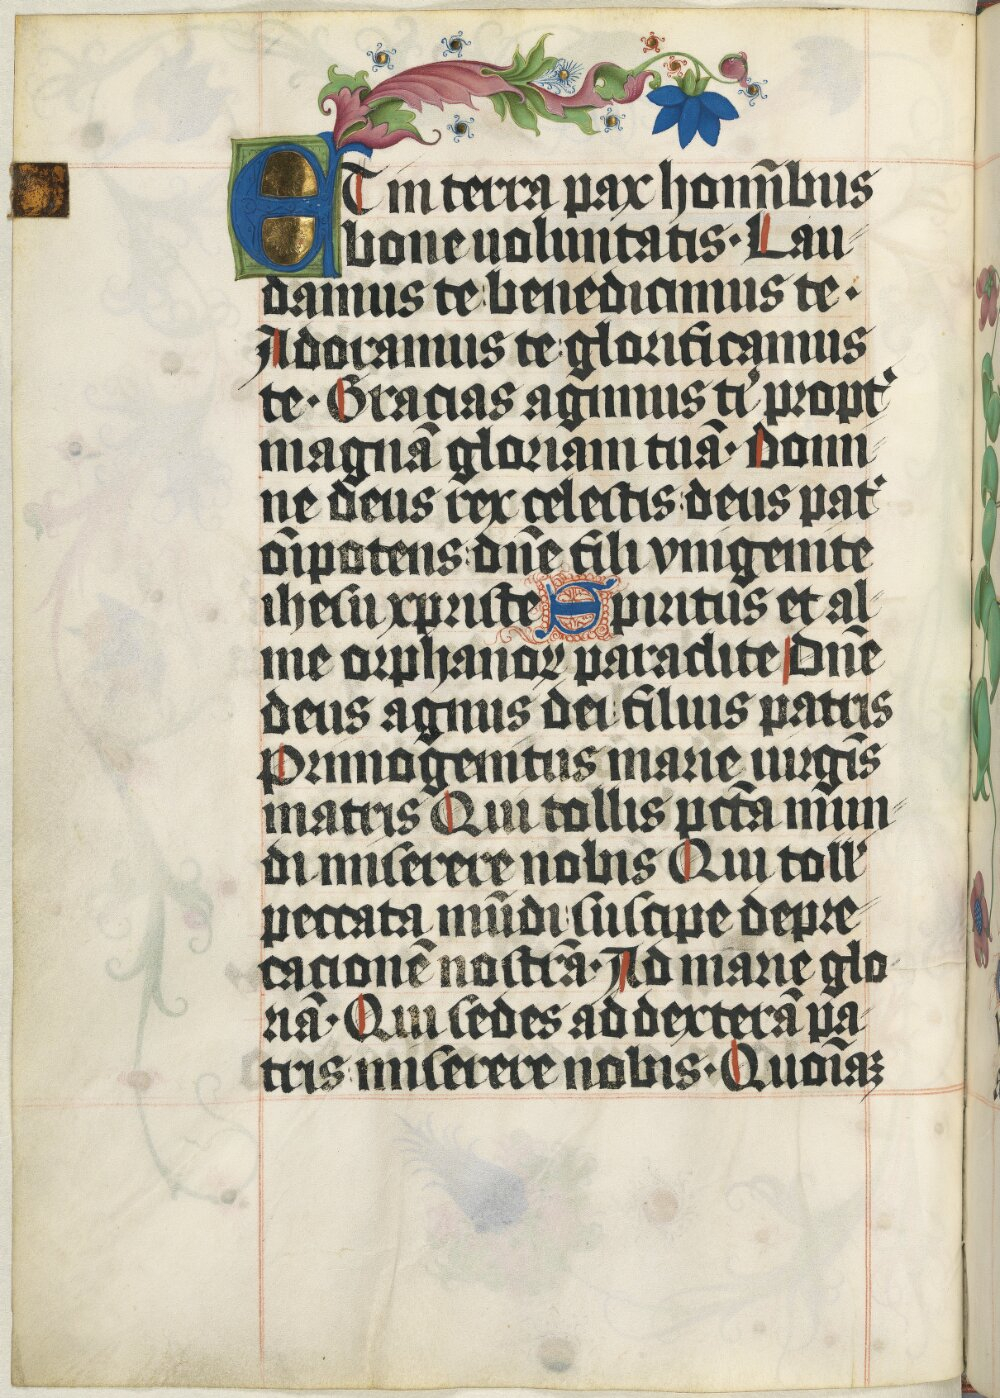 ET in terra pax hoīnibus
bone uoluntatis · Lau
damus te benedicimus te ·
Adoramus te glorificamus
te · Gracias agimus ti' propt'
magnā gloriam tuā · Domi
ne deus rex celestis deus pat'
oīpotens dn̄e fili vnigenite
ihesu xpriste Spiritus et al
me orphanoꝝ paraclite Dn̄e
deus agnus dei filius patris
Primogenitus marie uirgīs
matris Qui tollis pctā mun
di miserere nobis Qui toll'
peccata mūdi suscipe depre
cacionē nostrā · Ad marie glo
riā · Qui sedes ad dexterā pa
tris miserere nobis · Quoīaꝫ